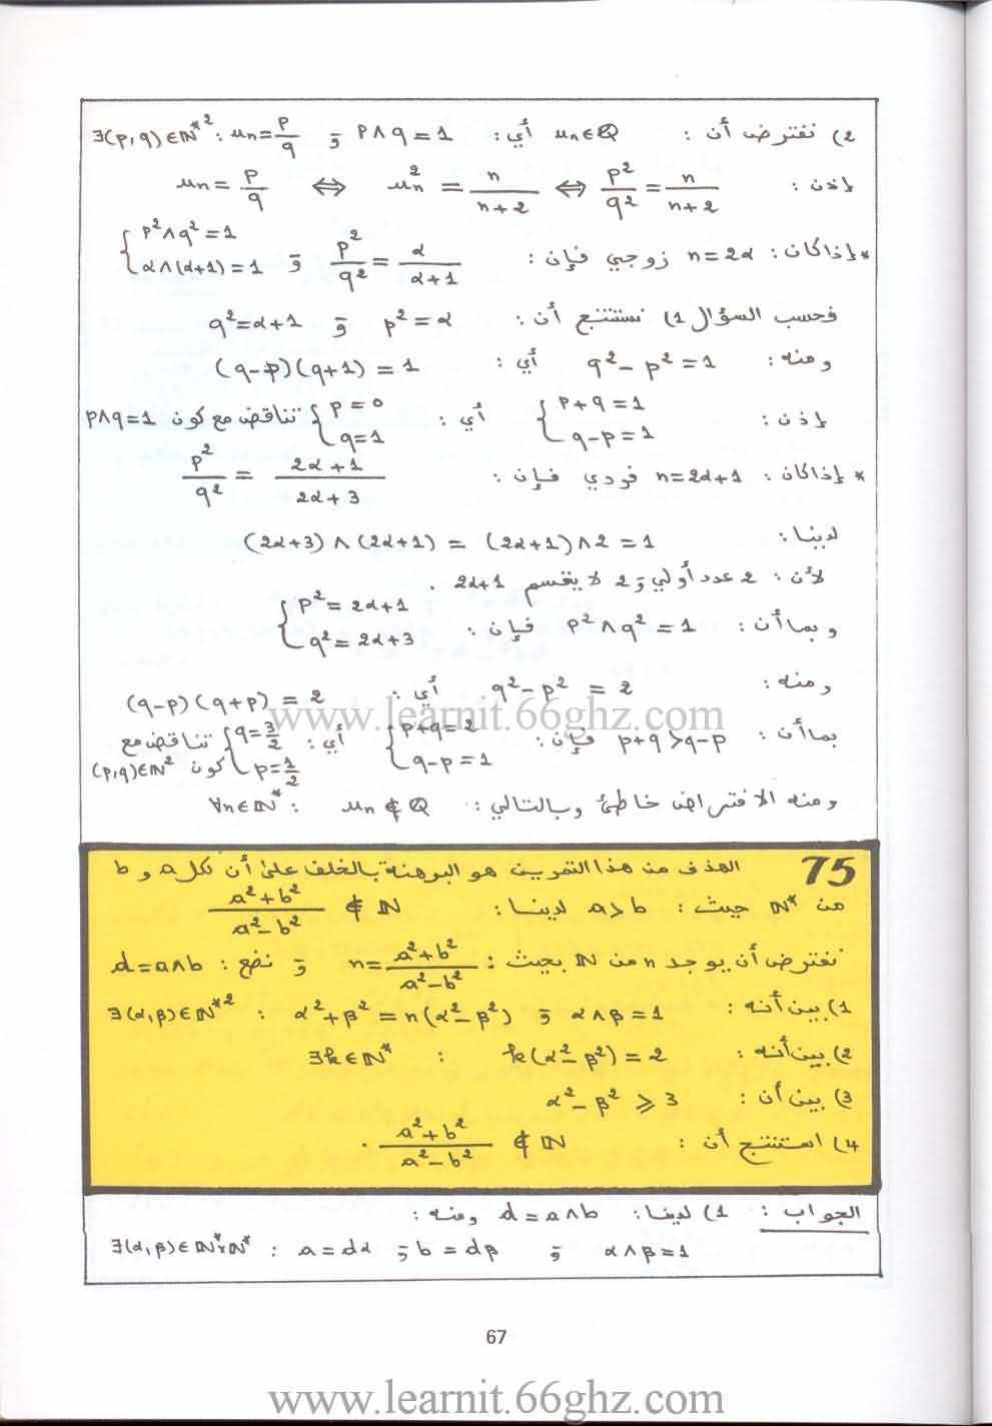 2) نفترض أن : un∈ℚ أي : ∃(p,q)∈ℕ*² : un = p/q و p∧q = 1
إذن : un = p/q ⇔ un² = n/(n+2) ⇔ p²/q² = n/(n+2)
* إذا كان : n = 2α زوجي فإن : p²/q² = α/(α+1) و { p²∧q² = 1 ; α∧(α+1) = 1
فحسب السؤال 1) نستنتج أن : p² = α و q² = α+1
ومنه : q² - p² = 1 أي : (q-p)(q+1) = 1
إذن : { p+q = 1 ; q-p = 1 أي : { p = 0 ; q = 1 تناقض مع كون p∧q = 1
* إذا كان : n = 2α+1 فردي فإن : p²/q² = (2α+1)/(2α+3)
لدينا : (2α+3)∧(2α+1) = (2α+1)∧2 = 1
لأن : 2 عدد أولي و 2 لا يقسم 2α+1 .
وبما أن : p²∧q² = 1 فإن : { p² = 2α+1 ; q² = 2α+3
ومنه : q² - p² = 2 أي : (q-p)(q+p) = 2
بما أن : p+q > q-p فإن : { p+q = 2 ; q-p = 1 أي : { q = 3/2 ; p = 1/2 تناقض مع كون (p,q)∈ℕ²
ومنه الافتراض خاطئ وبالتالي : ∀n∈ℕ* : un ∉ ℚ
75 الهذف من هذا التمرين هو البرهنة بالخلف على أن لكل a و b
من ℕ* حيث : a > b لدينا : (a²+b²)/(a²-b²) ∉ ℕ
نفترض أن يوجد n من ℕ بحيث : n = (a²+b²)/(a²-b²) و نضع : d = a∧b
1) بين أنه : ∃(α,β)∈ℕ*² : α²+β² = n(α²-β²) و α∧β = 1
2) بين أنه : ∃k∈ℕ* : k(α²-β²) = 2
3) بين أن : α²-β² ⩾ 3
4) استنتج أن : (a²+b²)/(a²-b²) ∉ ℕ .
الجواب : 1) لدينا : d = a∧b ومنه :
∃(α,β)∈ℕ*×ℕ* : a = dα و b = dβ و α∧β = 1
67
www.learnit.66ghz.com
www.learnit.66ghz.com